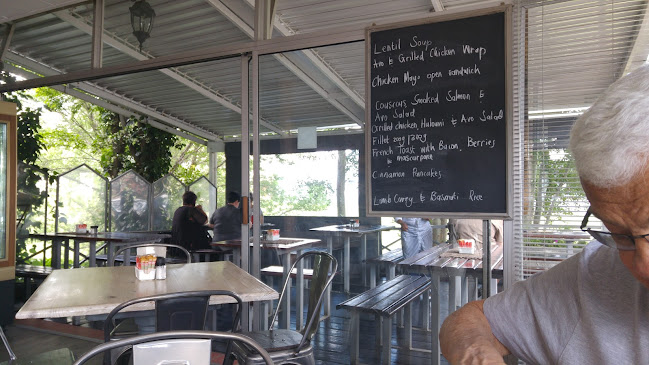 Lentil Soup
Avo & Grilled Chicken Wrap
Chicken Mayo open sandwich
Couscous Smoked Salmon &
Avo Salad
Grilled chicken, Haloumi & Avo Salad
Fillet 200g | 300g
French Toast with Bacon, Berries
& mascarpone
Cinnamon Pancakes
Lamb Curry & Basmati Rice